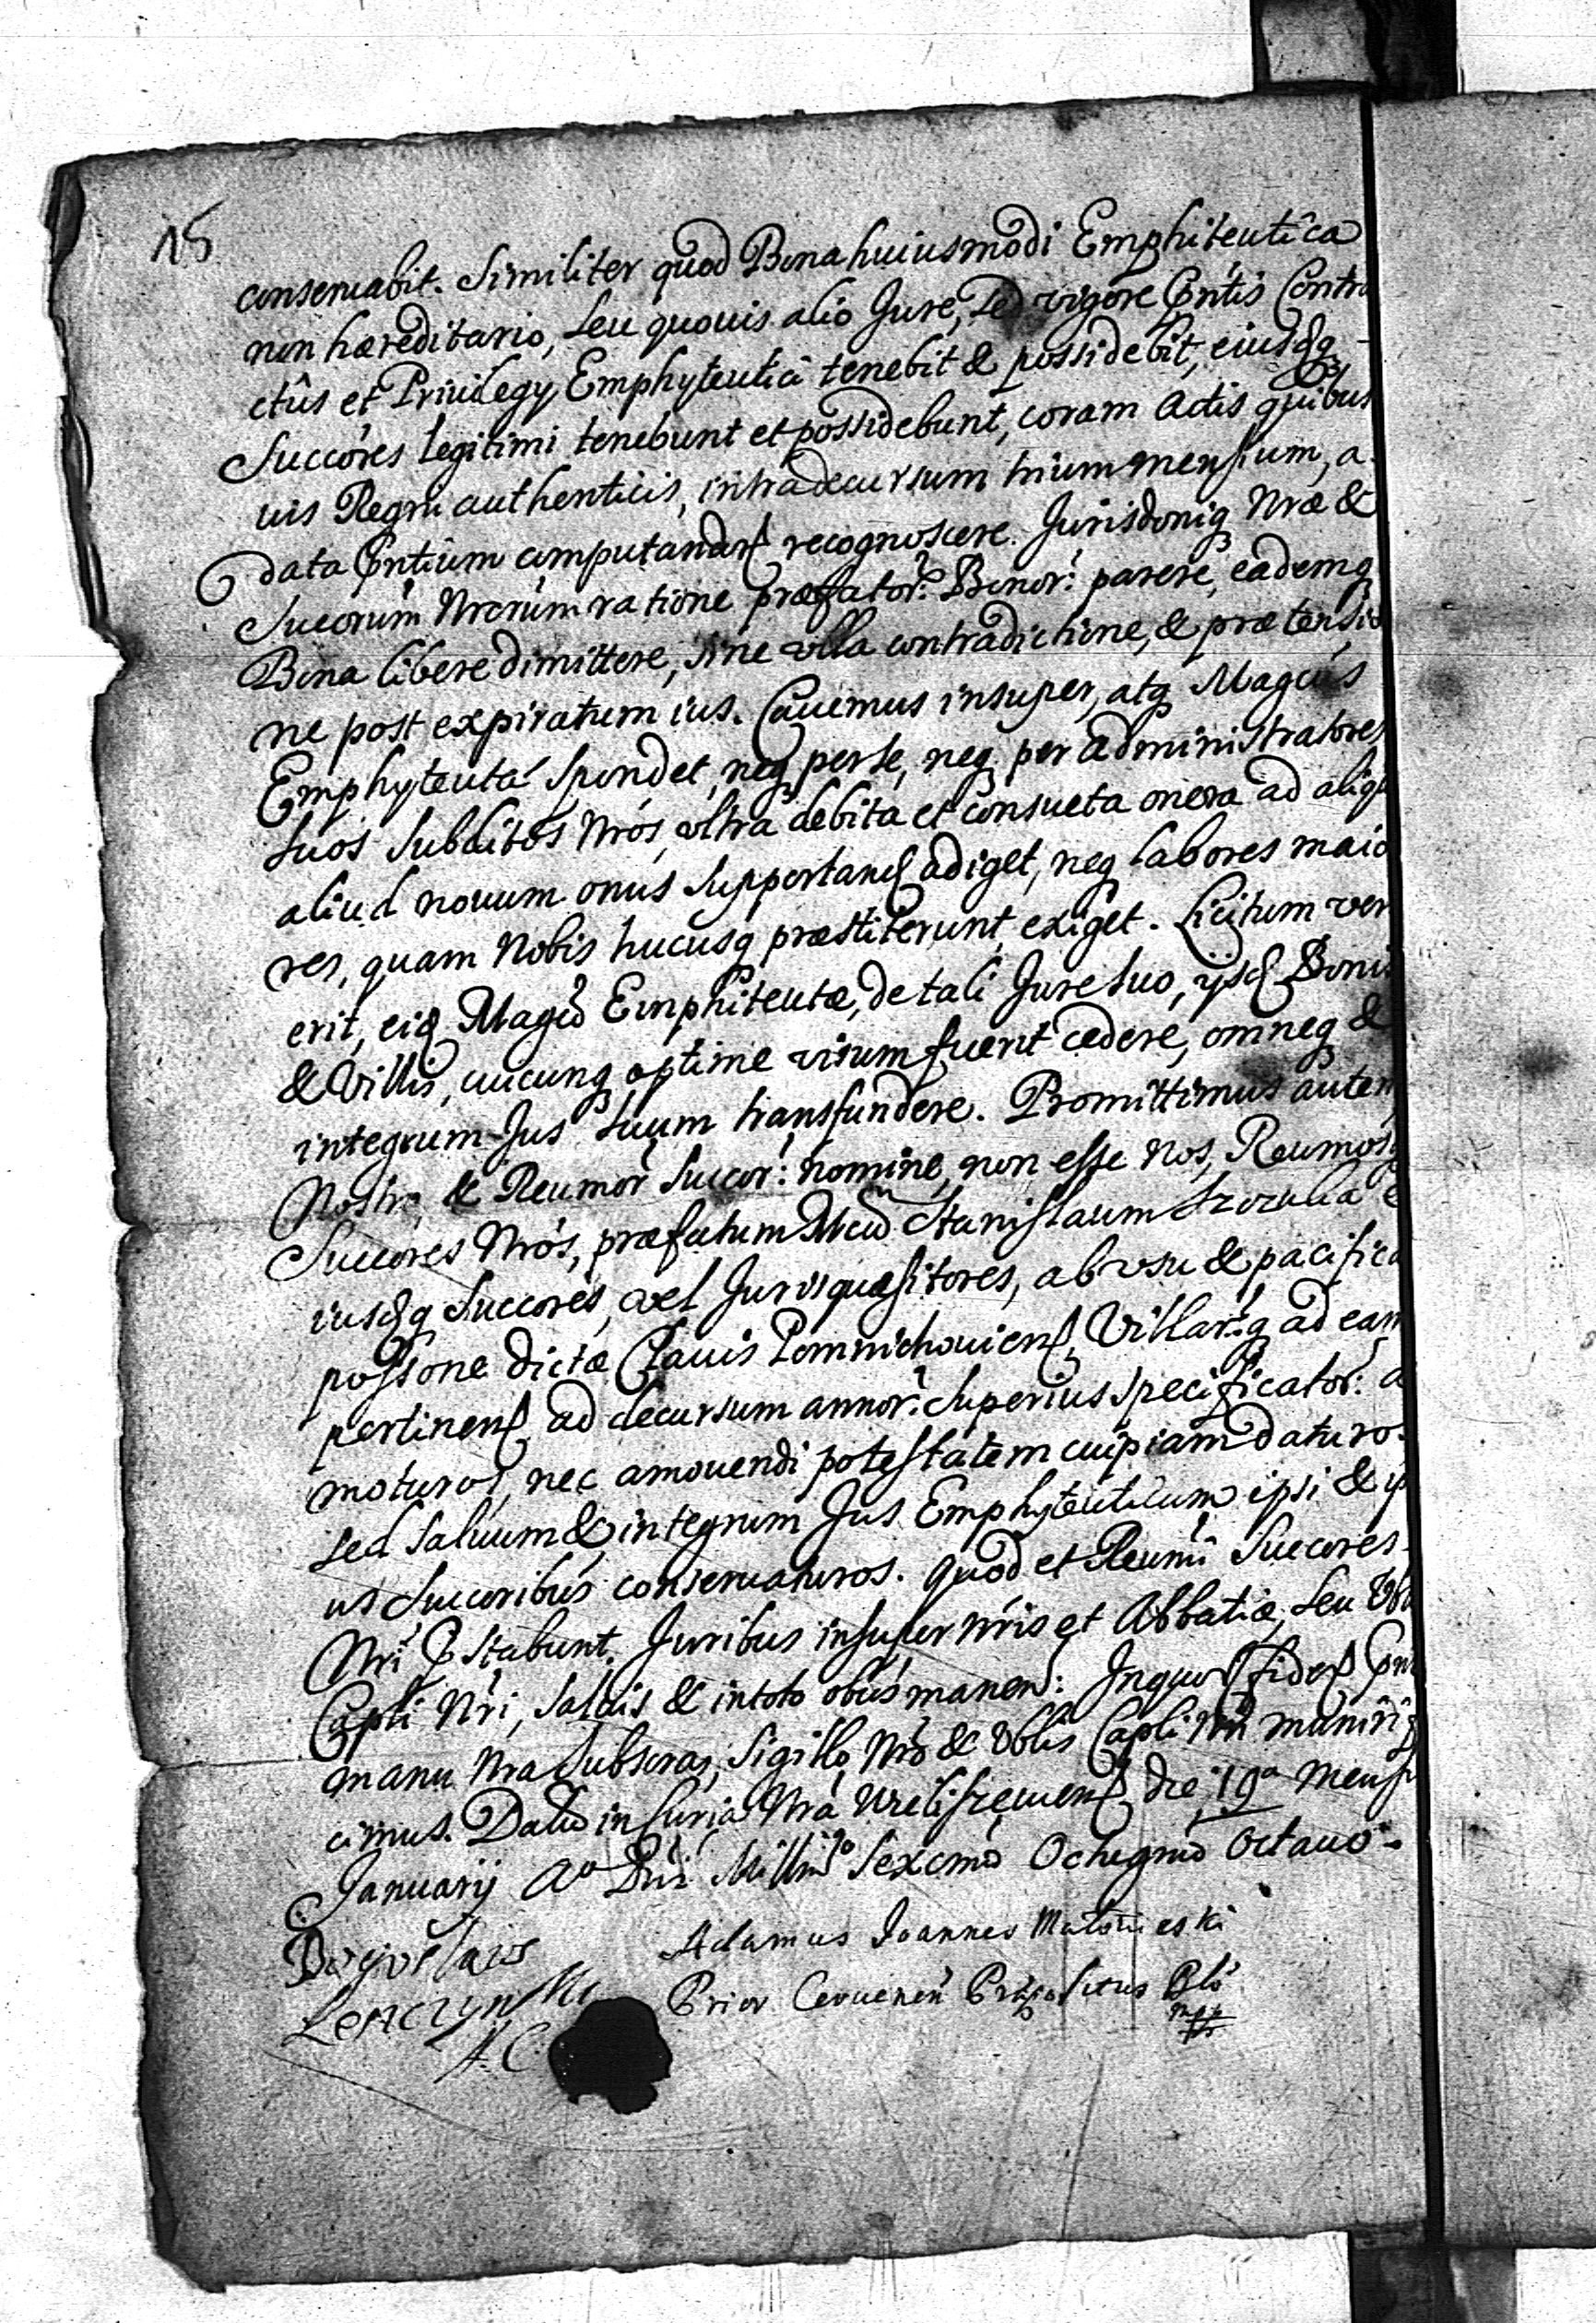 15
conseruabit. Similiter quod Bona huiusmodi Emphiteutica
non hæreditario, seu quouis alio Jure, sed vigore pntis Contra
ctûs et Priuilegy Emphyteutici tenebit & possidebit, eiusdq
Succóres legitimi tenebunt et possidebunt, coram Actis quibus
uis Regni authenticis, intra decursum trium mensium, a
data pntium computand recognoscere. Jurisdoniq Nræ &
Succorum Nrorum ratione præfator: Bonor: parere, eademq
Bona libere dimittere, sine vlla contradictione, & prætensio
ne post expiratum ius. Cauemus insuper, atq Magcus
Emphyteuta spondet, neq per se, neq per administratores
suos subditos Nros, vltra debita et consueta onera ad aliqu
aliud nouum onus supportand adiget, neq labores maio
res, quam Nobis hucusq præstiterunt, exiget. Licitum ver
erit, eid Magco Emphiteutæ, de tali Jure suo, ijsd Bonis
& Villis, cuicunq optime visum fuerit cedere, omneq &
integrum Jus suum transfundere. Promittimus autem
Nostro & Reumor Succor: nomine, non esse Nos, Reumosq
Succores Nros, præfatum Mcum Stanislaum e
iusdq Succores, vel Juris quæsitores, ab vsu & pacifica
possone dictæ Clauis Pomnichouiens, Villar:q ad eam
pertinens, ad decursum annor: superius specificator: a
moturos, nec amouendi potestatem cuipiam daturos
sed saluum & integrum Jus Emphyteuticum ipsi & ip
us Succoribus conseruaturos. Quod et Reumi Succores
Nri pstabunt. Juribus insuper Nris et Abbatiæ, seu Vbis
Capli Nri, saluis & in toto obus manen: In quor fidem pnt
manu Nra subscras, sigillo Nro & Vblis Capli Nri muniriq
cimus. Datum in Curia Nra die 19a Mensis
Januarij Ao Dni Millmo Sexcmo Octuagmo Octauo.
Boguslaus Adamus Joannes
Lenczynski Prior Ceruenen Præpositus Plo
A. C. mpp